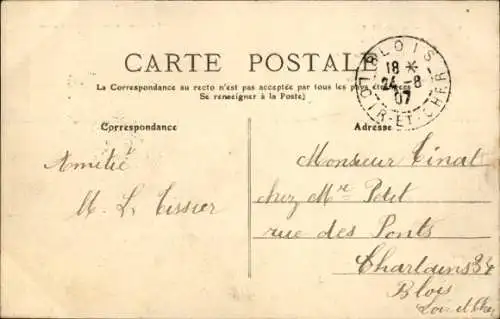 CARTE POSTALE
La Correspondance au recto n'est pas acceptée par tous les pays étrangers
Se renseigner à la Poste)
BLOIS
18 *
24 -8
07
LOIR-ET-CHER
Correspondance
Adresse
Amitié
M. L. Tissier
Monsieur Tinat
chez Mr Petit
rue des Ponts
Chartains 34
Blois
Loir et Cher